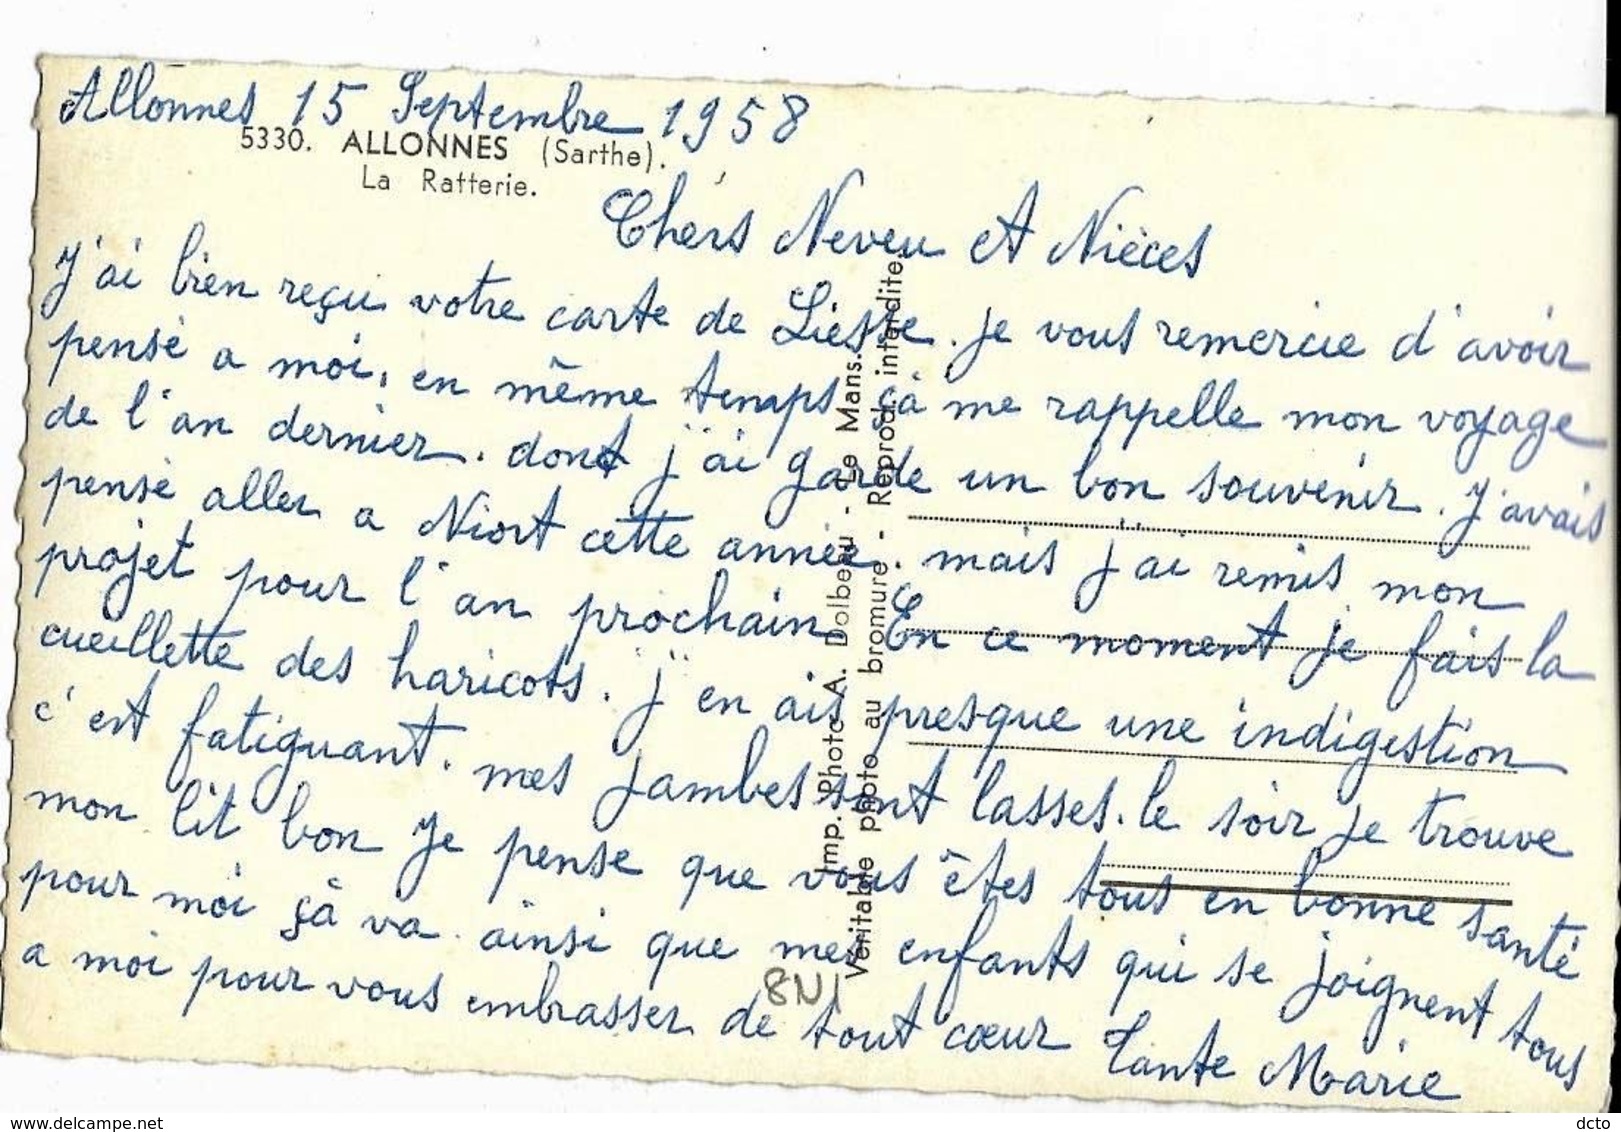 Allonnes 15 Septembre 1958
5330. ALLONNES (Sarthe).
La Ratterie.
Chers Neveu et Nièces
J'ai bien reçu votre carte de Liesse. je vous remercie d'avoir
pensé a moi, en même temps çà me rappelle mon voyage
de l'an dernier. dont j'ai garde un bon souvenir. J'avais
pensé aller a Niort cette année. mais j'ai remis mon
projet pour l'an prochain En ce moment je fais la
cueillette des haricots. j'en ais presque une indigestion
c'est fatiguant. mes jambes sont lasses. le soir je trouve
mon lit bon je pense que vous êtes tous en bonne santé
pour moi çà va ainsi que mes enfants qui se joignent tous
a moi pour vous embrasser de tout cœur Tante Marie
Imp. Photo A. Dolbeau - Le Mans.
Véritable photo au bromure - Reprod. interdite.
8N1
www.delcampe.net
dcto